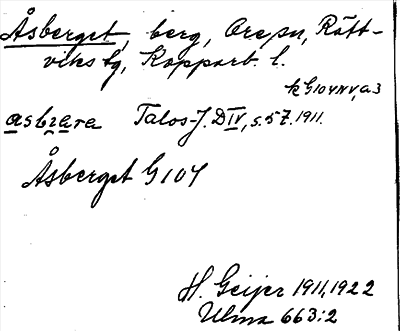 Åsberget, berg, Ore sn, Rätt-
viks tg, Kopparb. l.
k G104NV, a3
asbære Talos-J. DIV, s. 57. 1911.
Åsberget G104
H. Geijer 1911, 1922
Ulma 663:2